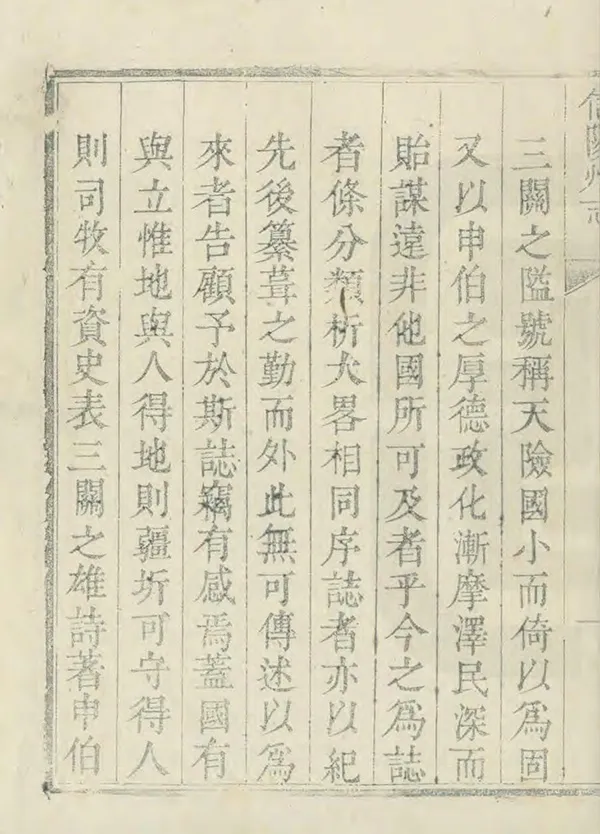 信陽州志
三關之隘號稱天險國小而倚以為固
又以申伯之厚德政化漸摩澤民深而
貽謀遠非他國所可及者乎今之為誌
者條分類析大畧相同序誌者亦以紀
先後纂葺之勤而外此無可傳述以為
來者告顧予於斯誌竊有感焉蓋國有
與立惟地與人得地則疆圻可守得人
則司牧有資史表三關之雄詩著申伯